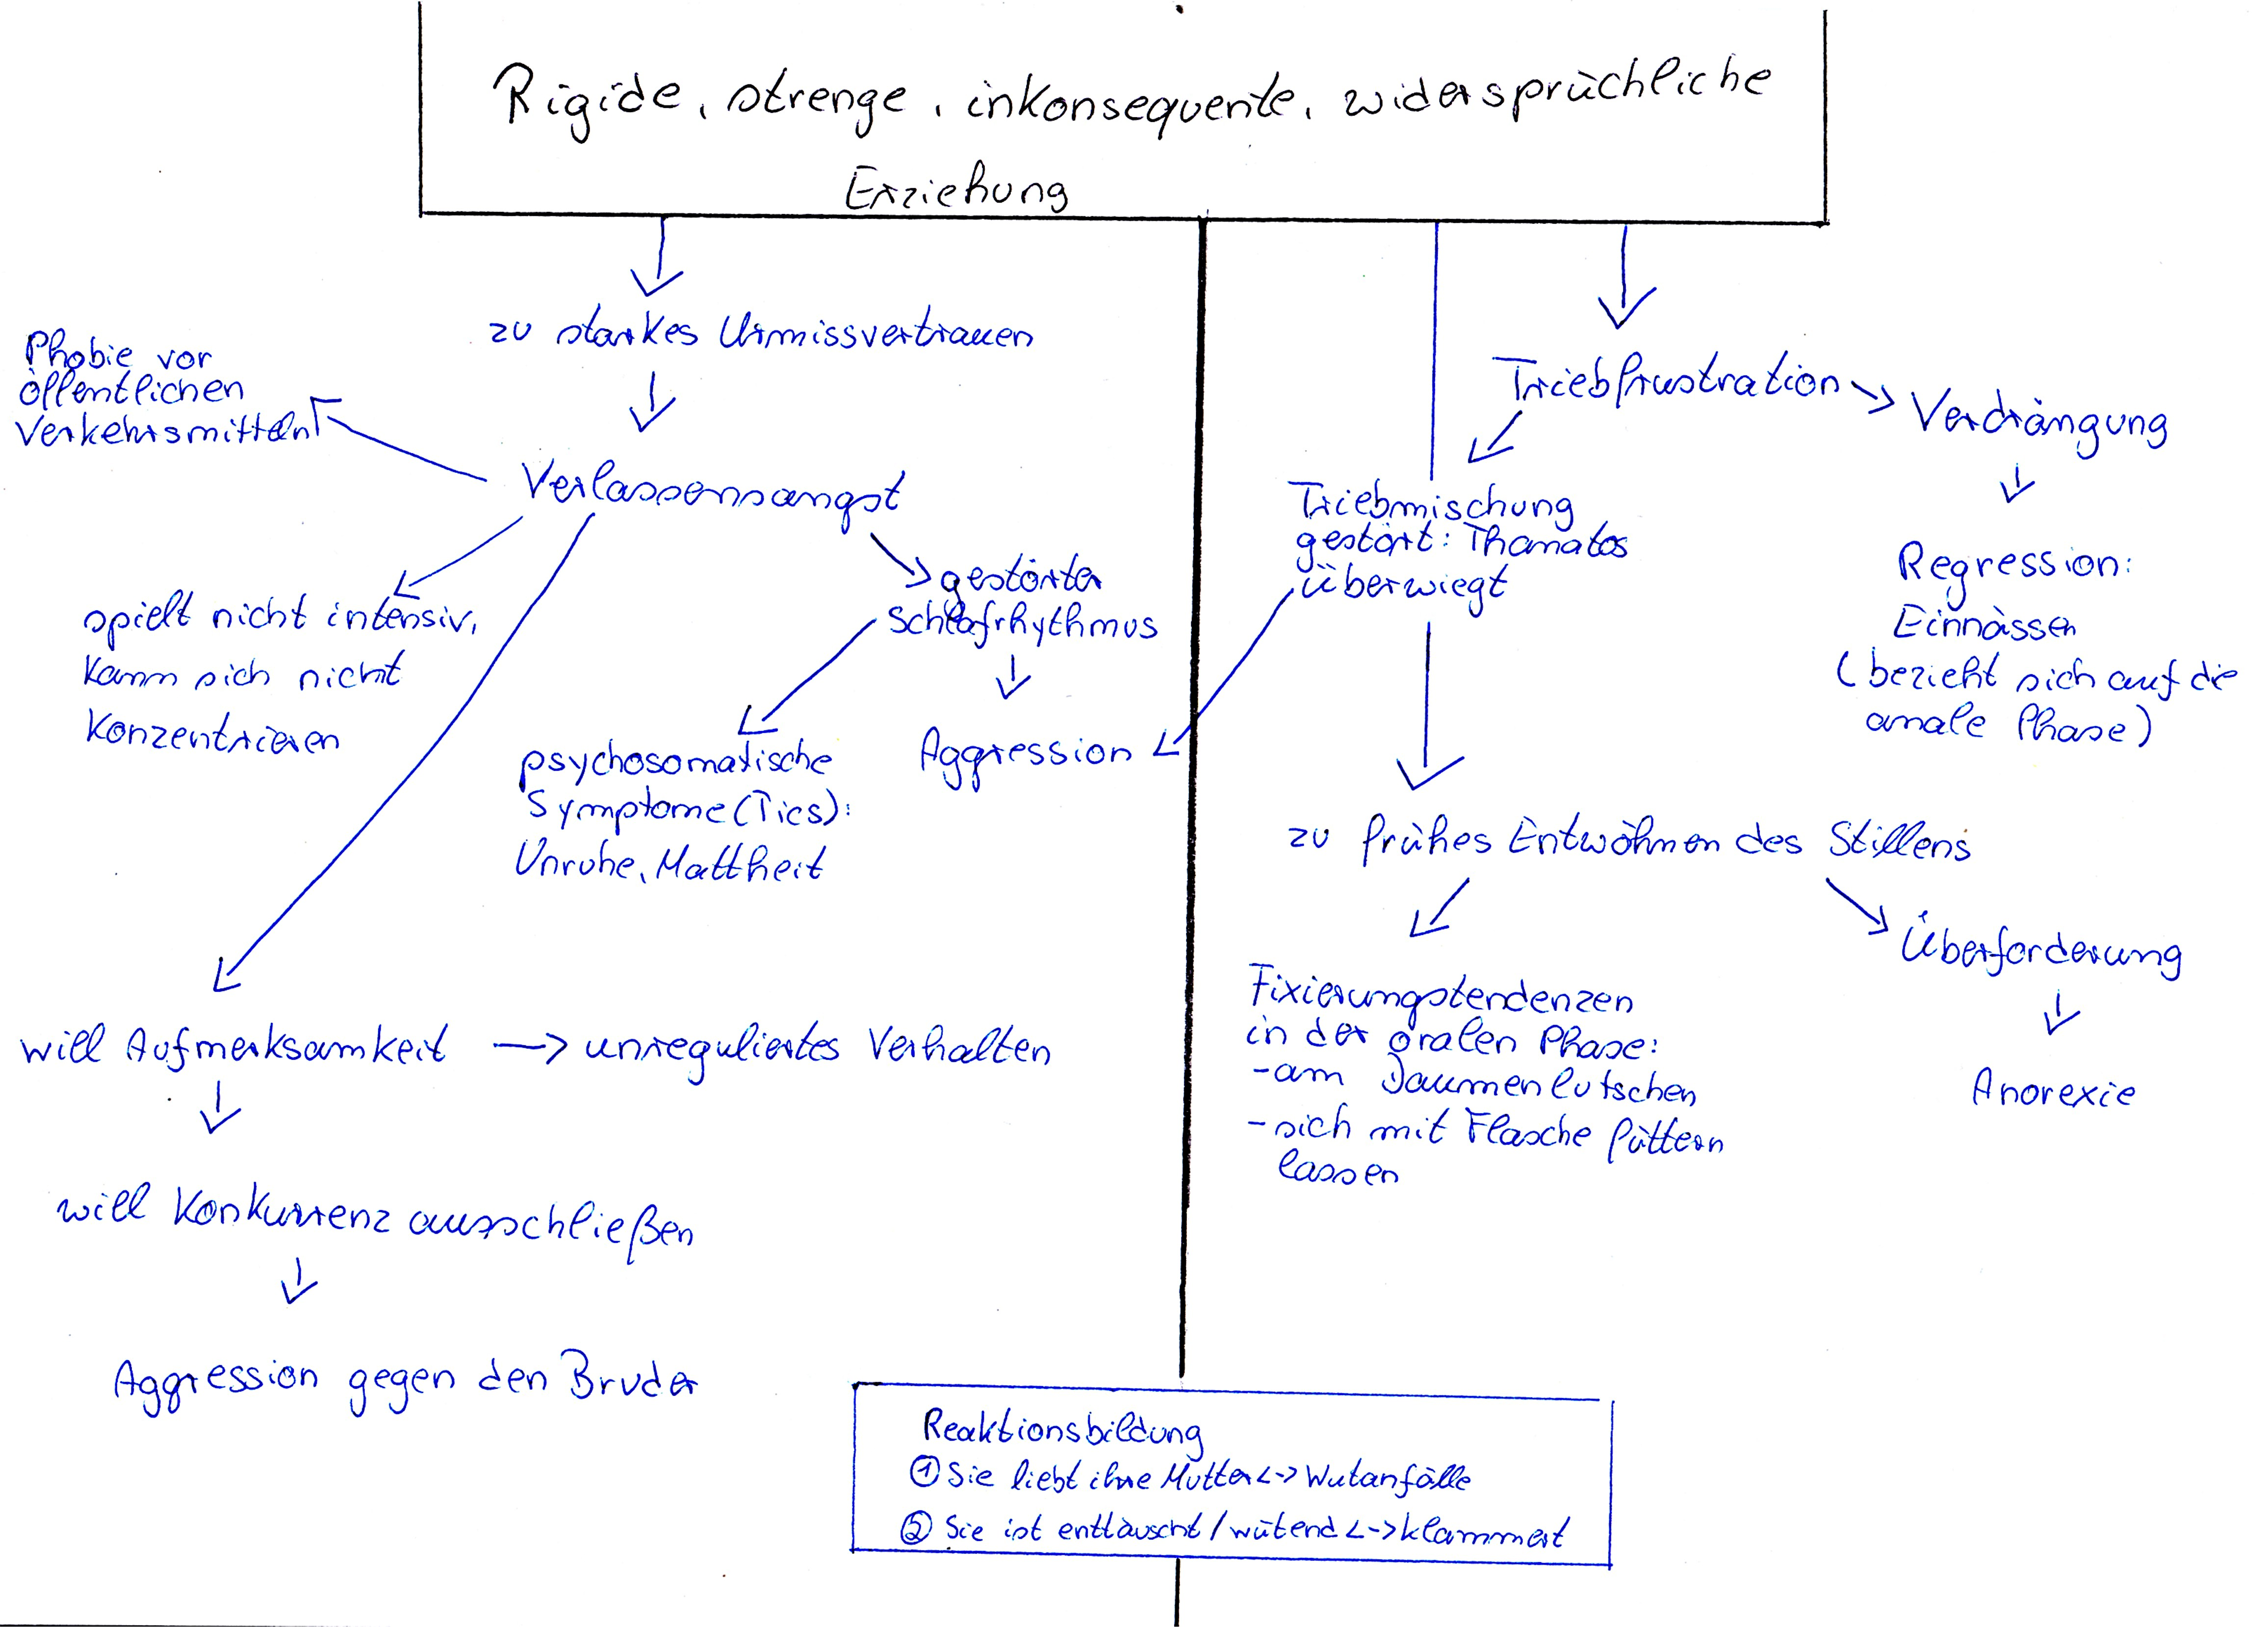 Rigide, strenge, inkonsequente, widersprüchliche
Erziehung
zu starkes Urmissvertrauen
Phobie vor
öffentlichen
Verkehrsmitteln
Verlassensangst
gestörter
Schlafrhythmus
spielt nicht intensiv,
kann sich nicht
konzentrieren
psychosomatische
Symptome (Tics):
Unruhe, Mattheit
Aggression
will Aufmerksamkeit -> unreguliertes Verhalten
will Konkurrenz ausschließen
Aggression gegen den Bruder
Triebfrustration
Verdrängung
Triebmischung
gestört: Thanatos
überwiegt
Regression:
Einnässen
(bezieht sich auf die
anale Phase)
zu frühes Entwöhnen des Stillens
Überforderung
Anorexie
Fixierungstendenzen
in der oralen Phase:
- am Daumen lutschen
- sich mit Flasche füttern
lassen
Reaktionsbildung
① Sie liebt ihre Mutter <-> Wutanfälle
② Sie ist enttäuscht / wütend <-> klammert